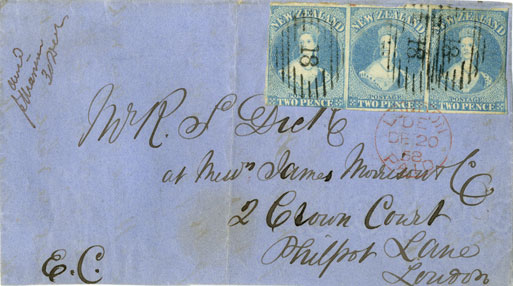 NEW ZEALAND NEW ZEALAND NEW ZEALAND
18 18 18
POSTAGE POSTAGE POSTAGE
TWO PENCE TWO PENCE TWO PENCE
LONDON
DE 20
PAID
Mr R. S Dick
at Messrs James Morrison & Co
2 Crown Court
Philpot Lane
London
E.C.